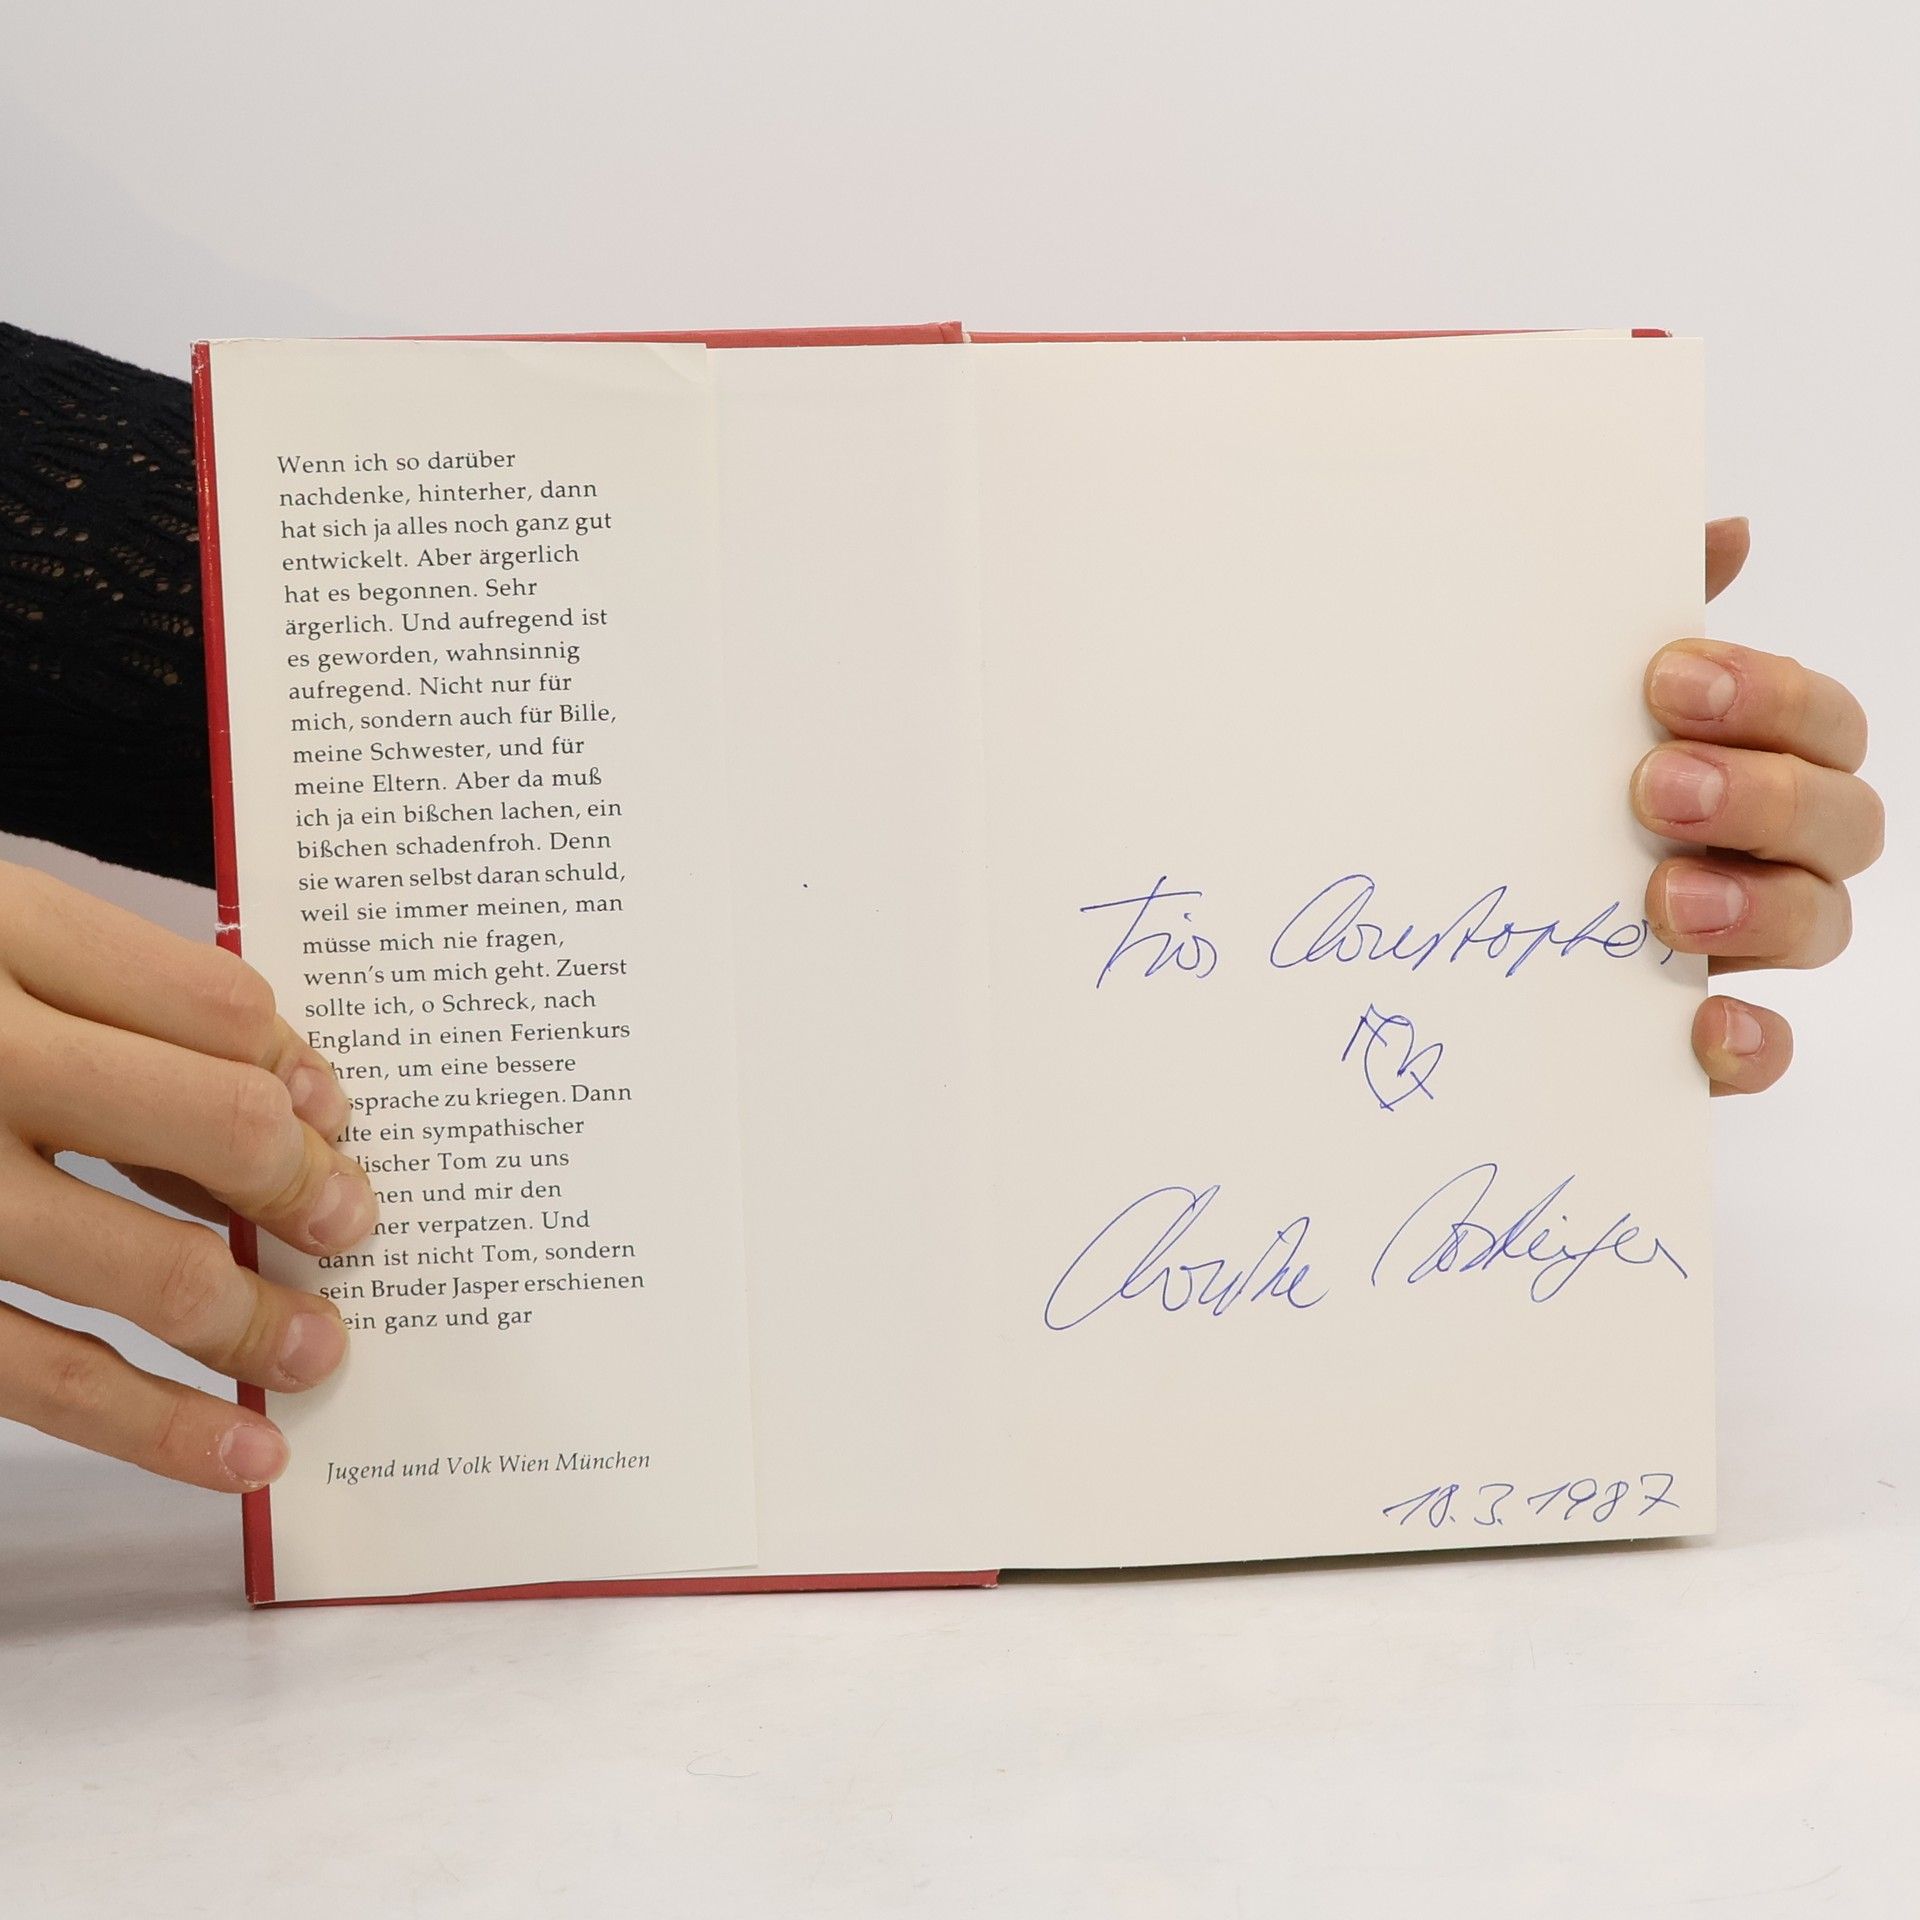 Wenn ich so darüber
nachdenke, hinterher, dann
hat sich ja alles noch ganz gut
entwickelt. Aber ärgerlich
hat es begonnen. Sehr
ärgerlich. Und aufregend ist
es geworden, wahnsinnig
aufregend. Nicht nur für
mich, sondern auch für Bille,
meine Schwester, und für
meine Eltern. Aber da muß
ich ja ein bißchen lachen, ein
bißchen schadenfroh. Denn
sie waren selbst daran schuld,
weil sie immer meinen, man
müsse mich nie fragen,
wenn's um mich geht. Zuerst
sollte ich, o Schreck, nach
England in einen Ferienkurs
hren, um eine bessere
ssprache zu kriegen. Dann
llte ein sympathischer
lischer Tom zu uns
nen und mir den
mer verpatzen. Und
dann ist nicht Tom, sondern
sein Bruder Jasper erschienen
ein ganz und gar
Jugend und Volk Wien München
Für Christopher
Christine Nöstlinger
18.3.1987